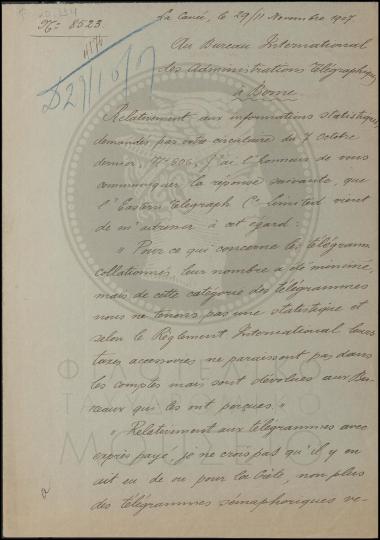 La Canée, le 29/11 Novembre 1907
No: 8523
Au Bureau International
des Administrations Télégraphiques
à Berne
Relativement aux informations statistiques,
demandées par votre circulaire du 7 Octobre
dernier, No 606, J'ai l'honneur de vous
communiquer la réponse suivante, que
l'Eastern Telegraph Co Limited vient
de m'adresser à cet égard:
" Pour ce qui concerne les télégram
collationnés, leur nombre a été minime,
mais de cette catégorie des télégrammes
nous ne tenons pas une statistique et
selon le Règlement International leurs
taxes accessoires ne paraissent pas dans
les comptes mais sont dévolues aux Bu-
reaux qui les ont perçues. "
" Relativement aux télégrammes avec
exprès payé, je ne crois pas qu'il y en
ait eu de ou pour la Crète, non plus
des télégrammes sémaphoriques ve-